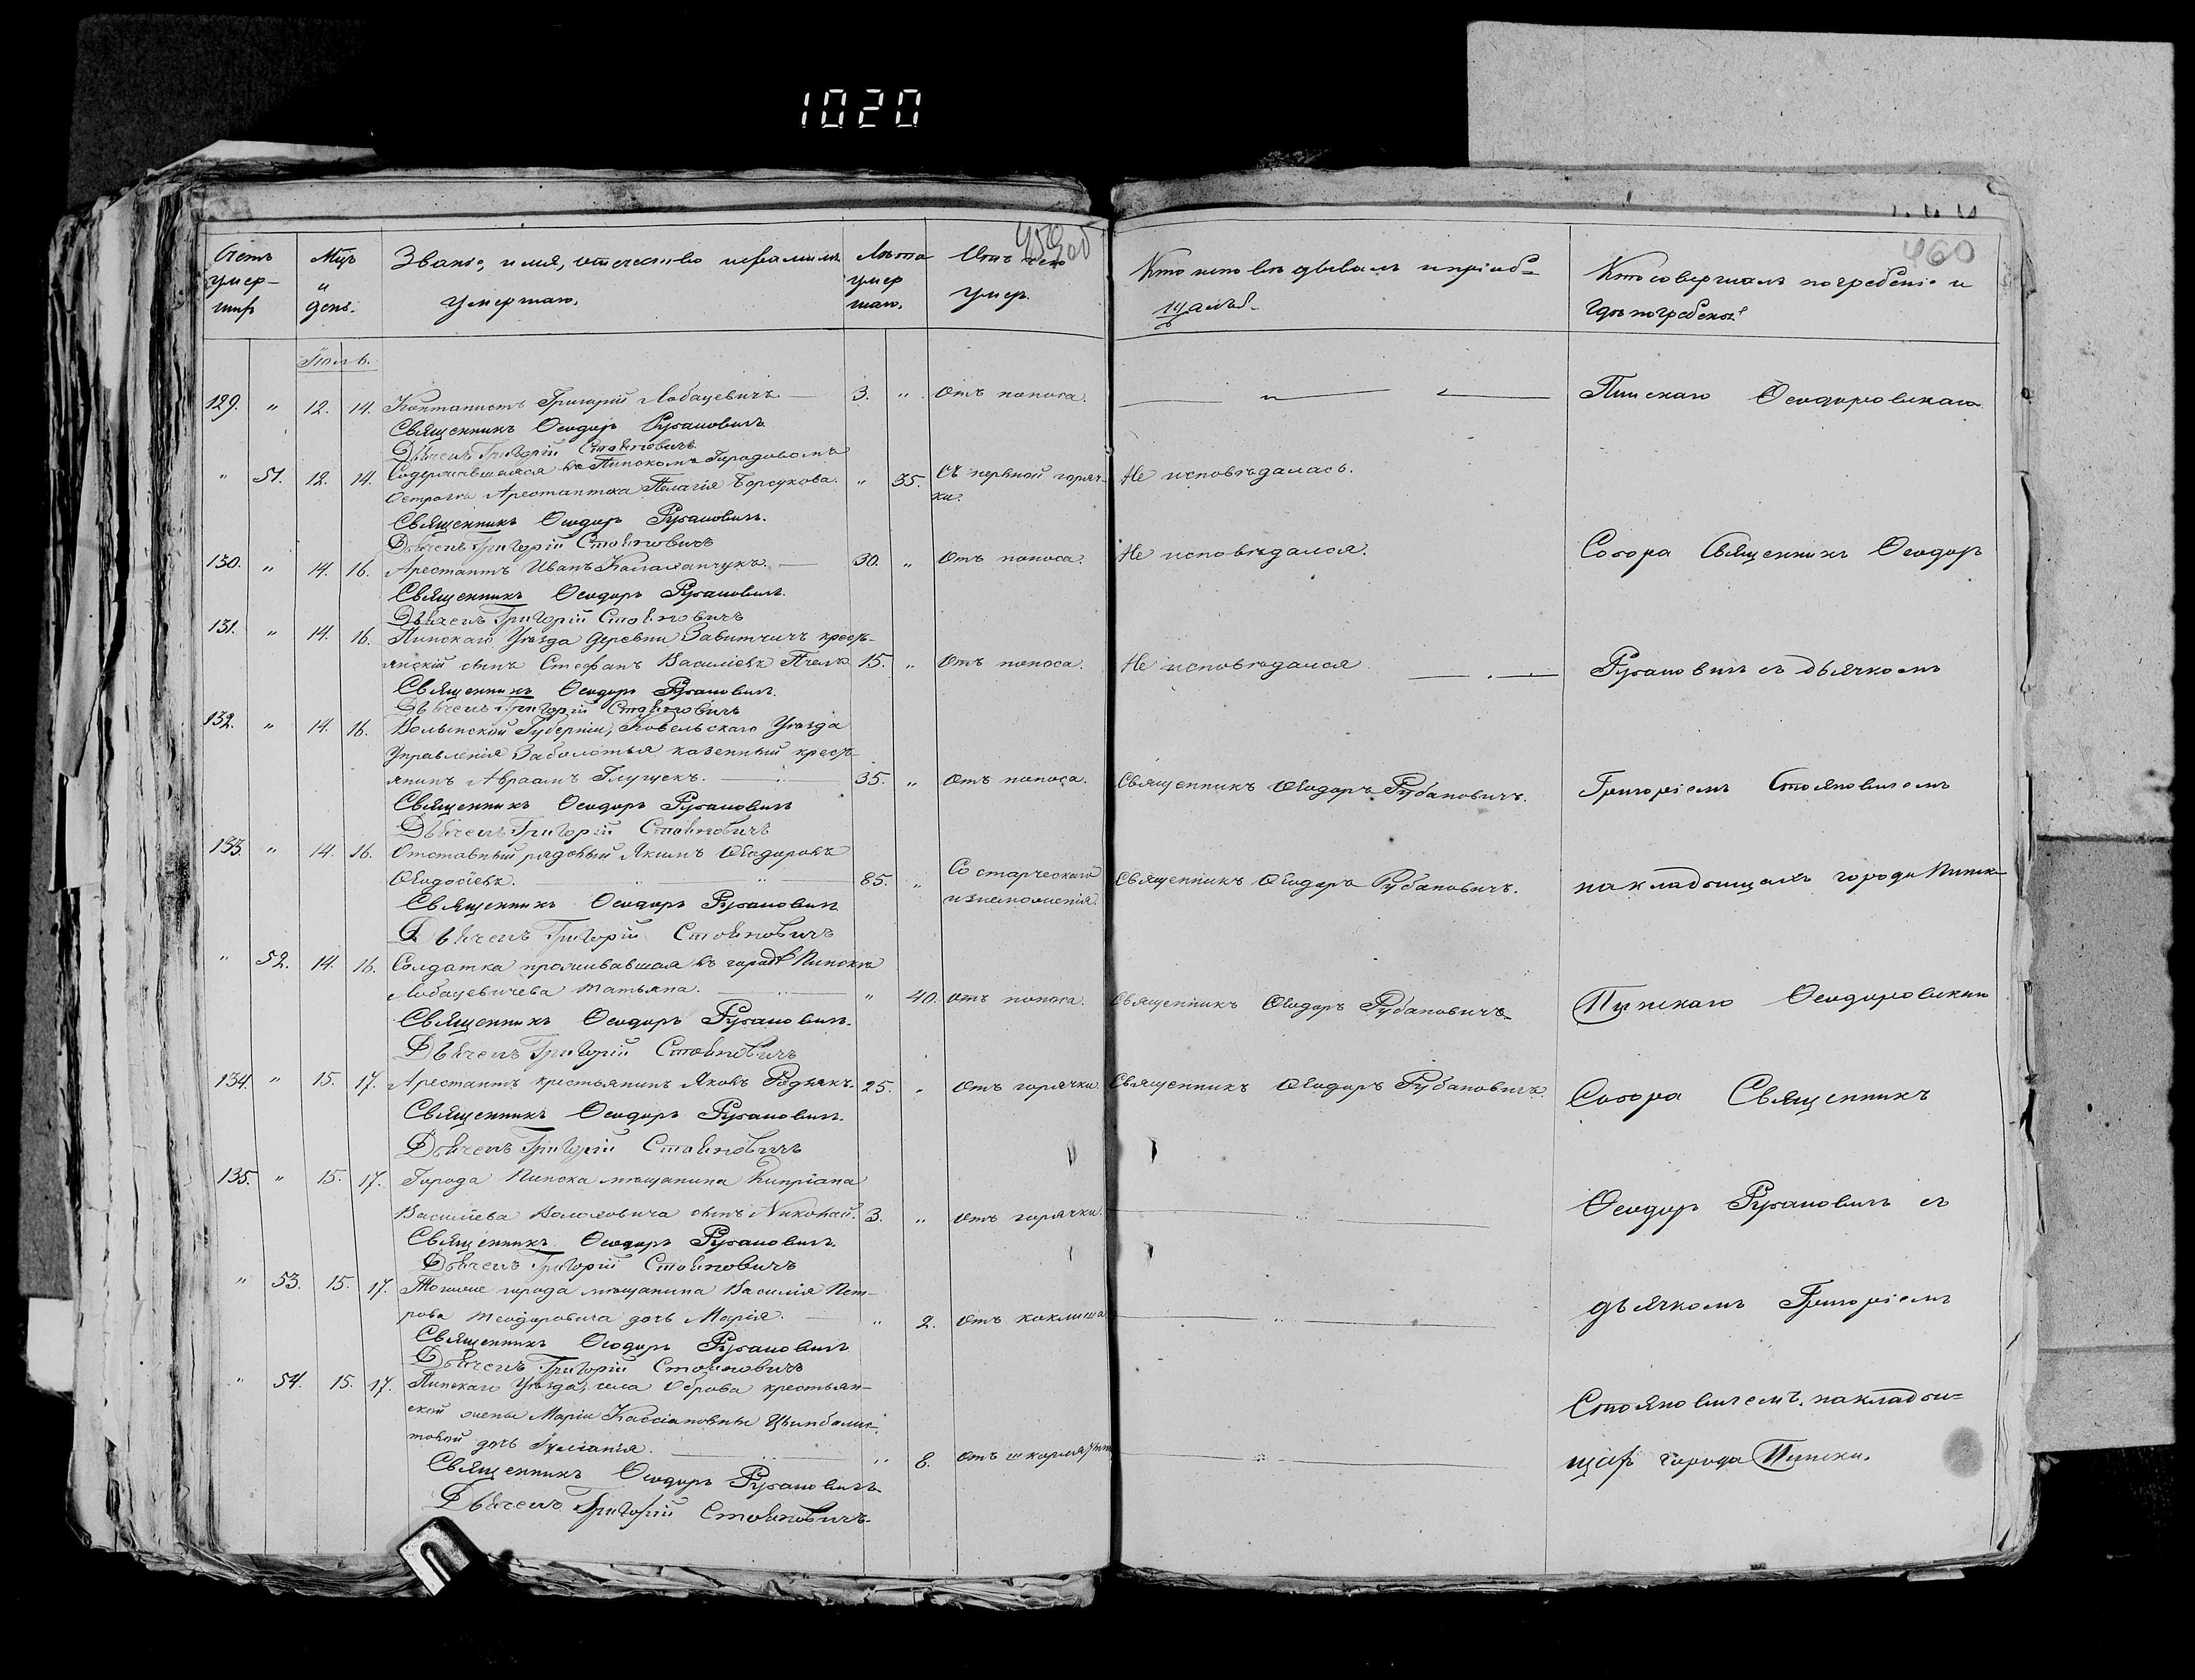 1020
459об
460
Счетъ умер-шихъ
Мцъ и день.
Званіе, имя, отечество и фамилія умершаго.
Лѣта умершаго.
Отъ чего умеръ.
Кто исповѣдывалъ и пріоб=щалъ.
Кто совершалъ погребеніе и гдѣ погребены.
Іюль.
129. " 12. 14. Кантонистъ Григорій Лобацевичъ. 3. " Отъ поноса.
Священникъ Ѳеодоръ Рубановичъ
Дьячекъ Григорій Стояновичъ
" 51. 12. 14. Содержавшаяся въ Пинскомъ Городовомъ
Острогѣ Арестантка Пелагія Борсукова. " 35. Съ нервной горяч-ки. Не исповѣдалась.
Священникъ Ѳеодоръ Рубановичъ.
Дьячекъ Григорій Стояновичъ
130. " 14. 16. Арестантъ Иванъ 30. " Отъ поноса. Не исповѣдался.
Священникъ Ѳеодоръ Рубановичъ.
Дьячекъ Григорій Стояновичъ
131. " 14. 16. Пинскаго Уѣзда деревни Завитчичъ кресть-
янскій сынъ Стефанъ Василіевъ 15. " Отъ поноса. Не исповѣдался
Священникъ Ѳеодоръ Рубановичъ.
Дьячекъ Григорій Стояновичъ
132. " 14. 16. Волынской Губерніи, Ковельскаго Уѣзда
Управленія Заболотья казенный кресть-
янинъ Авраамъ Глущекъ. 35. " Отъ поноса. Священникъ Ѳеодоръ Рубановичъ.
Священникъ Ѳеодоръ Рубановичъ
Дьячекъ Григорій Стояновичъ
133. " 14. 16. Отставный рядовый Якимъ Ѳеодоровъ
Ѳеодосіевъ. 85. " Со старческаго изнеможенія. Священникъ Ѳеодоръ Рубановичъ.
Священникъ Ѳеодоръ Рубановичъ
Дьячекъ Григорій Стояновичъ
" 52. 14. 16. Солдатка проживавшая въ городѣ Пинскѣ
Лобацевичева Татьяна. " 40. Отъ поноса. Священникъ Ѳеодоръ Рубановичъ
Священникъ Ѳеодоръ Рубановичъ.
Дьячекъ Григорій Стояновичъ
134. " 15. 17. Арестантъ крестьянинъ Яковъ Редькъ. 25. " Отъ горячки. Священникъ Ѳеодоръ Рубановичъ.
Священникъ Ѳеодоръ Рубановичъ.
Дьячекъ Григорій Стояновичъ
135. " 15. 17. Города Пинска мѣщанина Кипріана
Василіева сынъ Николай. 3. " Отъ горячки.
Священникъ Ѳеодоръ Рубановичъ.
Дьячекъ Григорій Стояновичъ
" 53. 15. 17. Тогоже города мѣщанина Василія Пет-
рова Теодоровича дочь Марія. " 2. Отъ коклюша
Священникъ Ѳеодоръ Рубановичъ
Дьячекъ Григорій Стояновичъ
" 54. 15. 17. Пинскаго Уѣзда, села Оброва крестьян-
ской жены Маріи Кассіановны
дочь Іуліанія. " 8. Отъ
Священникъ Ѳеодоръ Рубановичъ
Дьячекъ Григорій Стояновичъ.
Пинскаго Ѳеодоровскаго
Собора Священникъ Ѳеодоръ
Рубановичъ съ дьячкомъ
Григоріемъ Стояновичемъ
на кладбищахъ города Пинска
Пинскаго Ѳеодоровскаго
Собора Священникъ
Ѳеодоръ Рубановичъ съ
дьячкомъ Григоріемъ
Стояновичемъ. на кладби=
щахъ города Пинска.